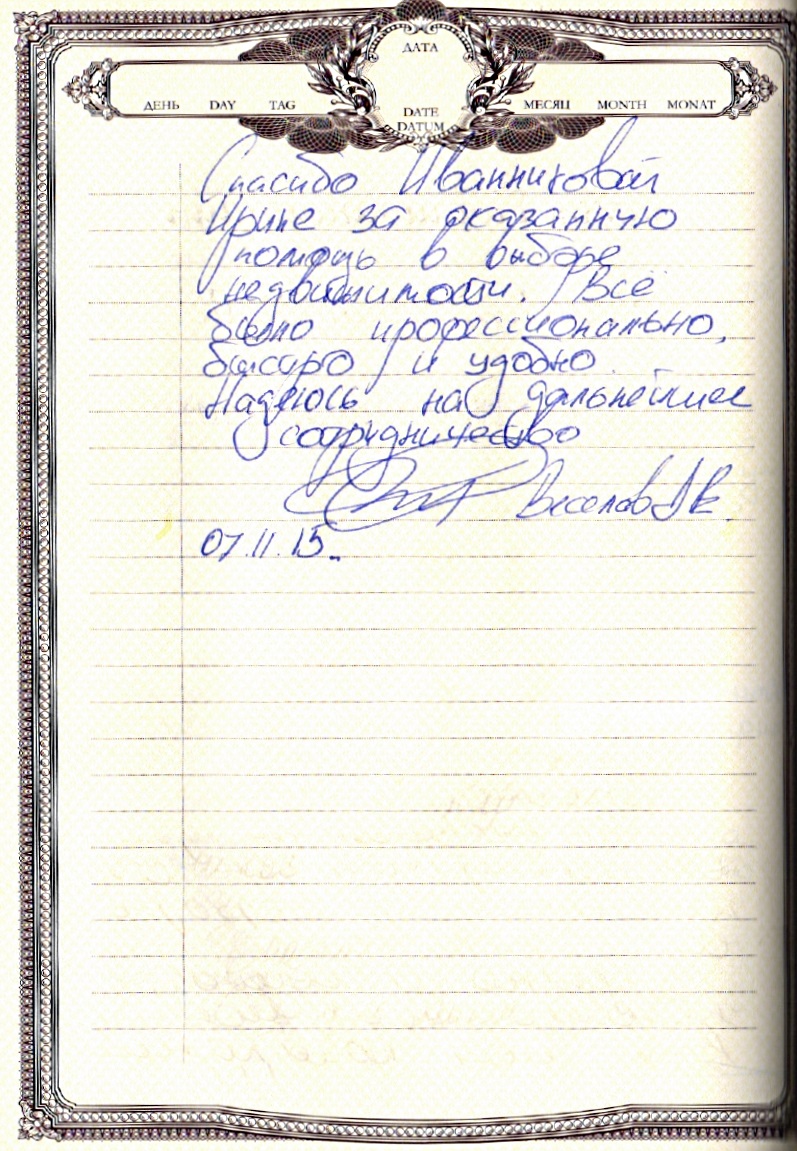 ДАТА
ДЕНЬ DAY TAG
DATE
DATUM
МЕСЯЦ MONTH MONAT
Спасибо Иванниковой
Ирине за оказанную
помощь в выборе
недвижимости. Всё
было профессионально,
быстро и удобно.
Надеюсь на дальнейшее
сотрудничество
Веселов
07.11.15.